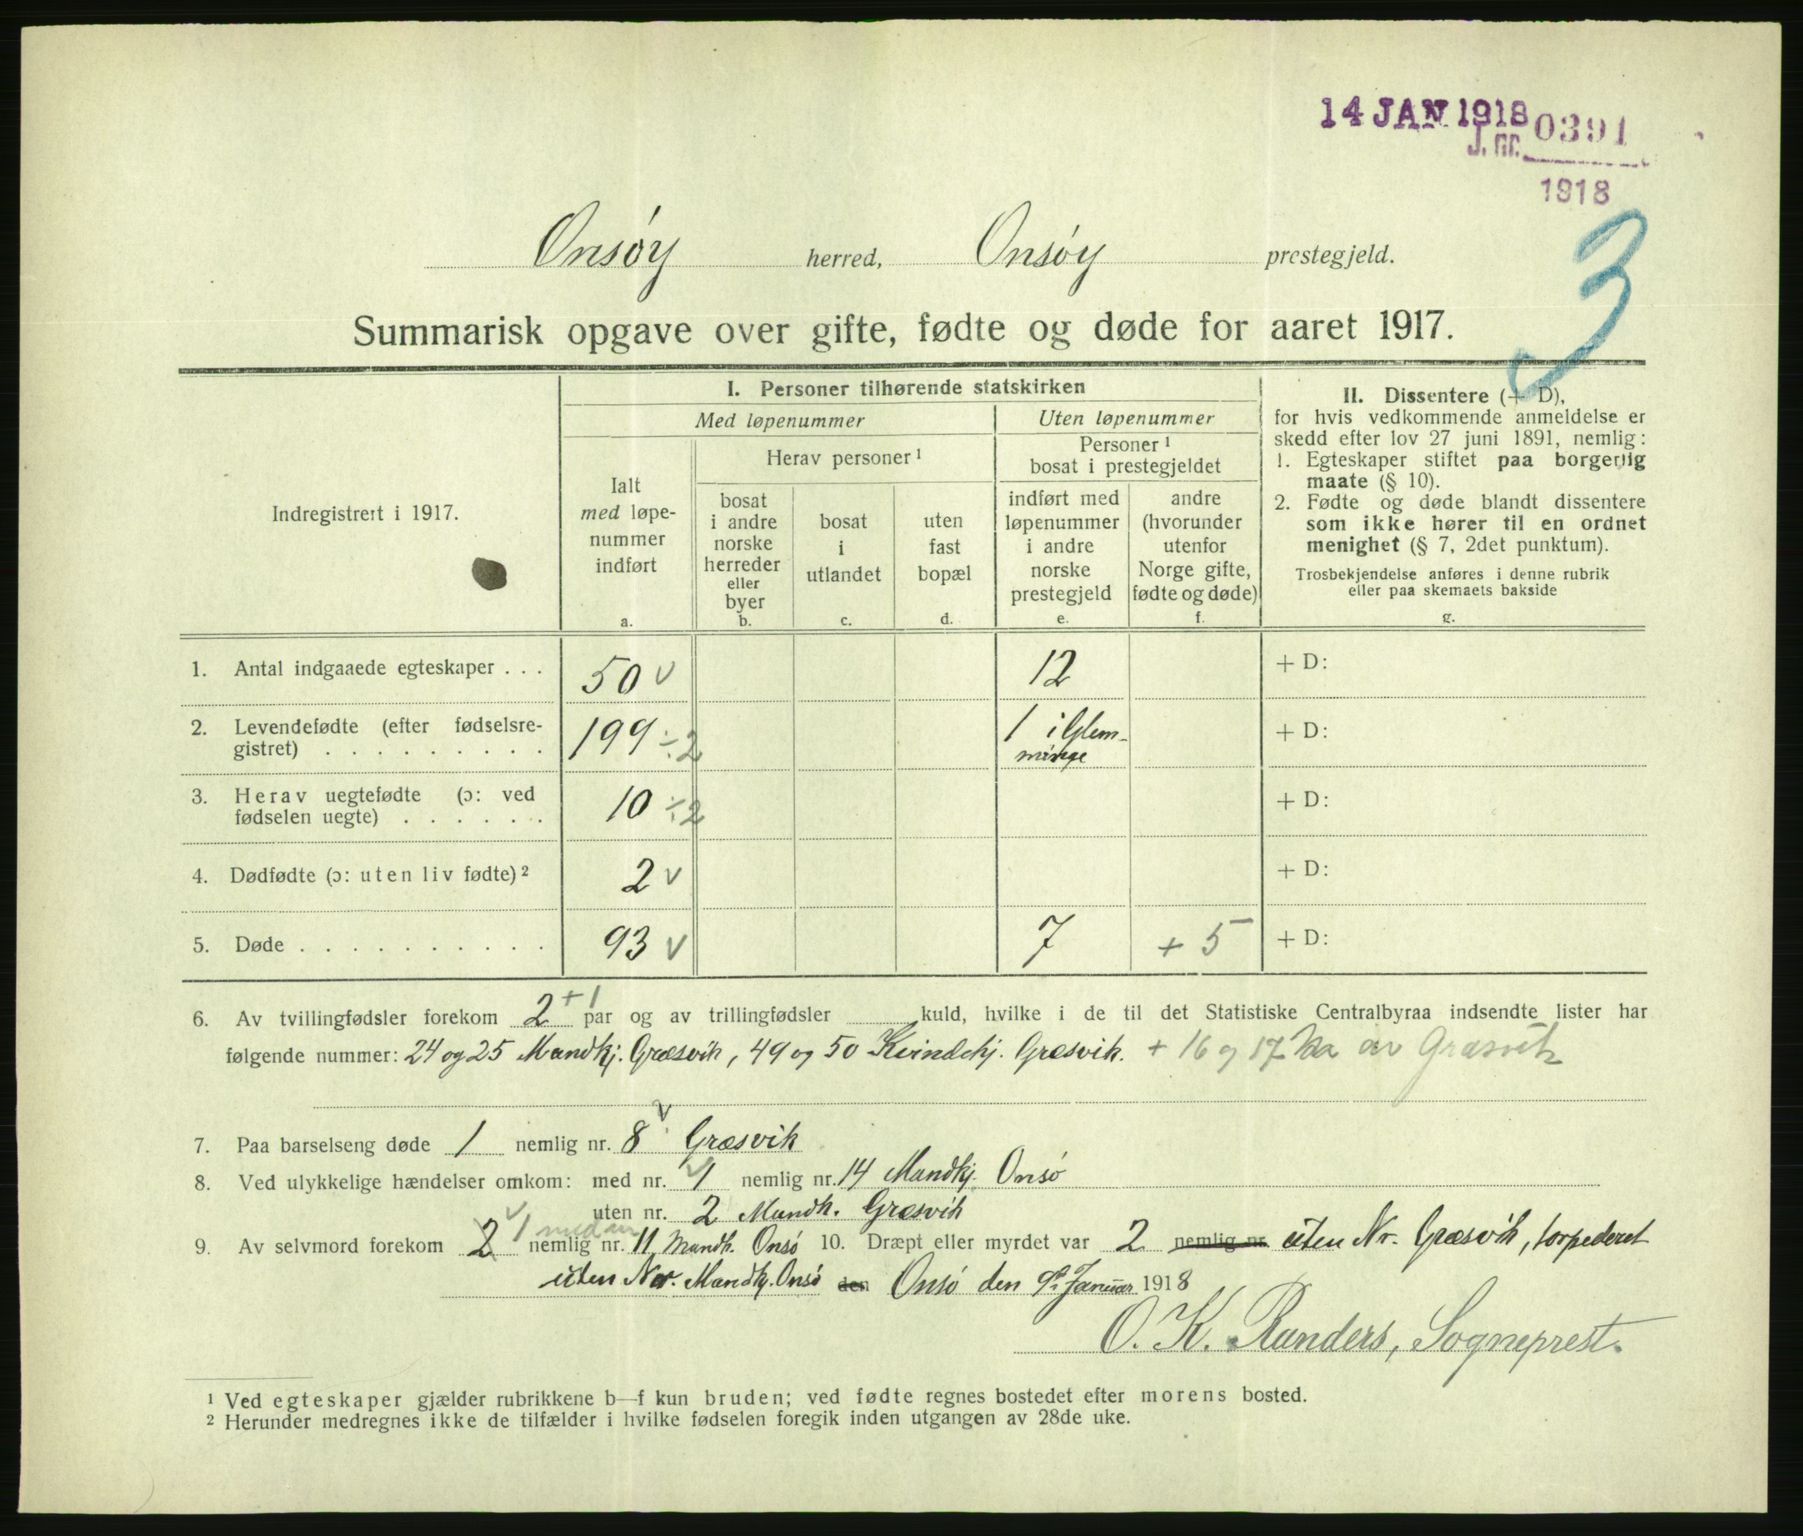 14 JAN 1918
J. nr. 0391
1918
3
Onsøy herred, Onsøy prestegjeld.
Summarisk opgave over gifte, fødte og døde for aaret 1917.
Indregistrert i 1917.
I. Personer tilhørende statskirken
Med løpenummer
Uten løpenummer
Ialt
med løpe-
nummer
indført
a.
Herav personer ¹
bosat
i andre
norske
herreder
eller
byer
b.
bosat
i
utlandet
c.
uten
fast
bopæl
d.
Personer ¹
bosat i prestegjeldet
indført med
løpenummer
i andre
norske
prestegjeld
e.
andre
(hvorunder
utenfor
Norge gifte,
fødte og døde)
f.
II. Dissentere (+ D),
for hvis vedkommende anmeldelse er
skedd efter lov 27 juni 1891, nemlig:
1. Egteskaper stiftet paa borgerlig
maate (§ 10).
2. Fødte og døde blandt dissentere
som ikke hører til en ordnet
menighet (§ 7, 2det punktum).
Trosbekjendelse anføres i denne rubrik
eller paa skemaets bakside
g.
1. Antal indgaaede egteskaper . . . 50 v 12 + D:
2. Levendefødte (efter fødselsre-
gistret) . . . . . . . . . 199 ÷2 1 i Glem-
minge + D:
3. Herav uegtefødte (ɔ: ved
fødselen uegte) . . . . . . 10 ÷2 + D:
4. Dødfødte (ɔ: uten liv fødte) ² 2 v + D:
5. Døde . . . . . . . . . . 93 v 7 + 5 + D:
6. Av tvillingfødsler forekom 2 +1 par og av trillingfødsler kuld, hvilke i de til det Statistiske Centralbyraa indsendte lister har
følgende nummer: 24 og 25 Mandkj. Græsvik, 49 og 50 Kvindekj. Græsvik. + 16 og 17 av Græsvik
7. Paa barselseng døde 1 nemlig nr. 8 v Græsvik
8. Ved ulykkelige hændelser omkom: med nr. v 1 nemlig nr. 14 Mandkj. Onsø
uten nr. 2 Mandk. Græsvik
9. Av selvmord forekom 2 v 1 med nr nemlig nr. 11 Mandk. Onsø 10. Dræpt eller myrdet var 2 nemlig nr. uten Nr. Græsvik, torpederet
uten Nr. Mandkj. Onsø den Onsø den 9de Januar 1918
O. K. Randers, Sogneprest.
¹ Ved egteskaper gjælder rubrikkene b—f kun bruden; ved fødte regnes bostedet efter morens bosted.
² Herunder medregnes ikke de tilfælder i hvilke fødselen foregik inden utgangen av 28de uke.